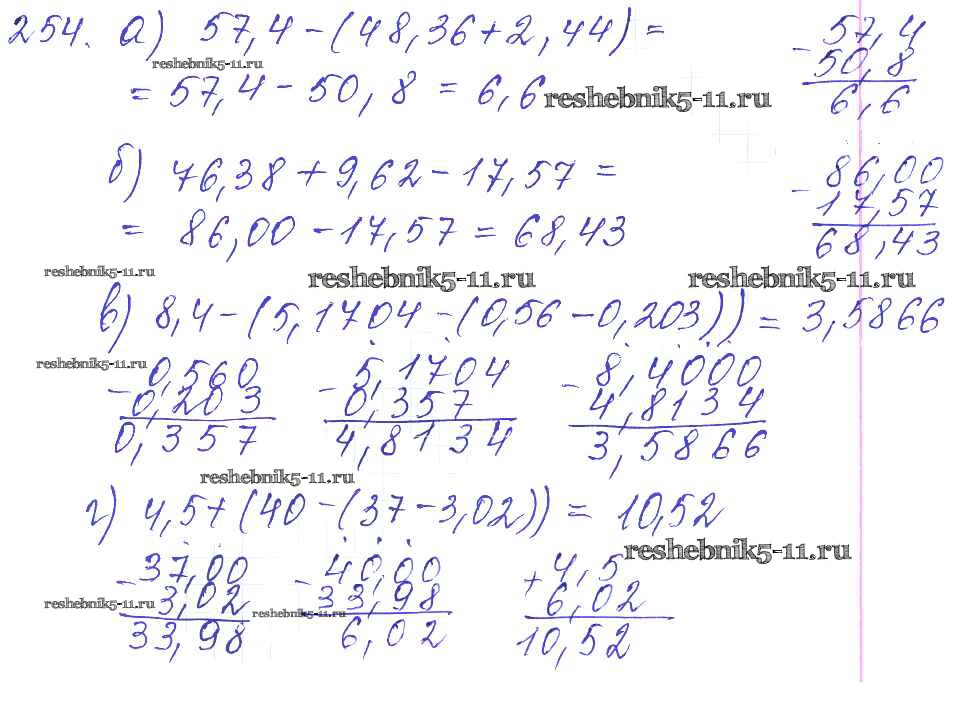 254. а) 57,4 - (48,36 + 2,44) =
57,4
reshebnik5-11.ru
- 50,8
= 57,4 - 50,8 = 6,6
reshebnik5-11.ru
6,6
б) 76,38 + 9,62 - 17,57 =
86,00
- 17,57
= 86,00 - 17,57 = 68,43
68,43
reshebnik5-11.ru
reshebnik5-11.ru
reshebnik5-11.ru
в) 8,4 - (5,1704 - (0,56 - 0,203)) = 3,5866
reshebnik5-11.ru
- 0,560 - 5,1704 - 8,4000
0,203 0,357 4,8134
0,357 4,8134 3,5866
reshebnik5-11.ru
г) 4,5 + (40 - (37 - 3,02)) = 10,52
reshebnik5-11.ru
- 37,00 - 40,00 + 4,5
reshebnik5-11.ru
3,02 33,98 6,02
reshebnik5-11.ru
33,98 6,02 10,52